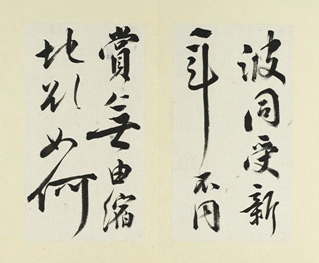 波同受新
年不同
賞無由縮
地欲如何